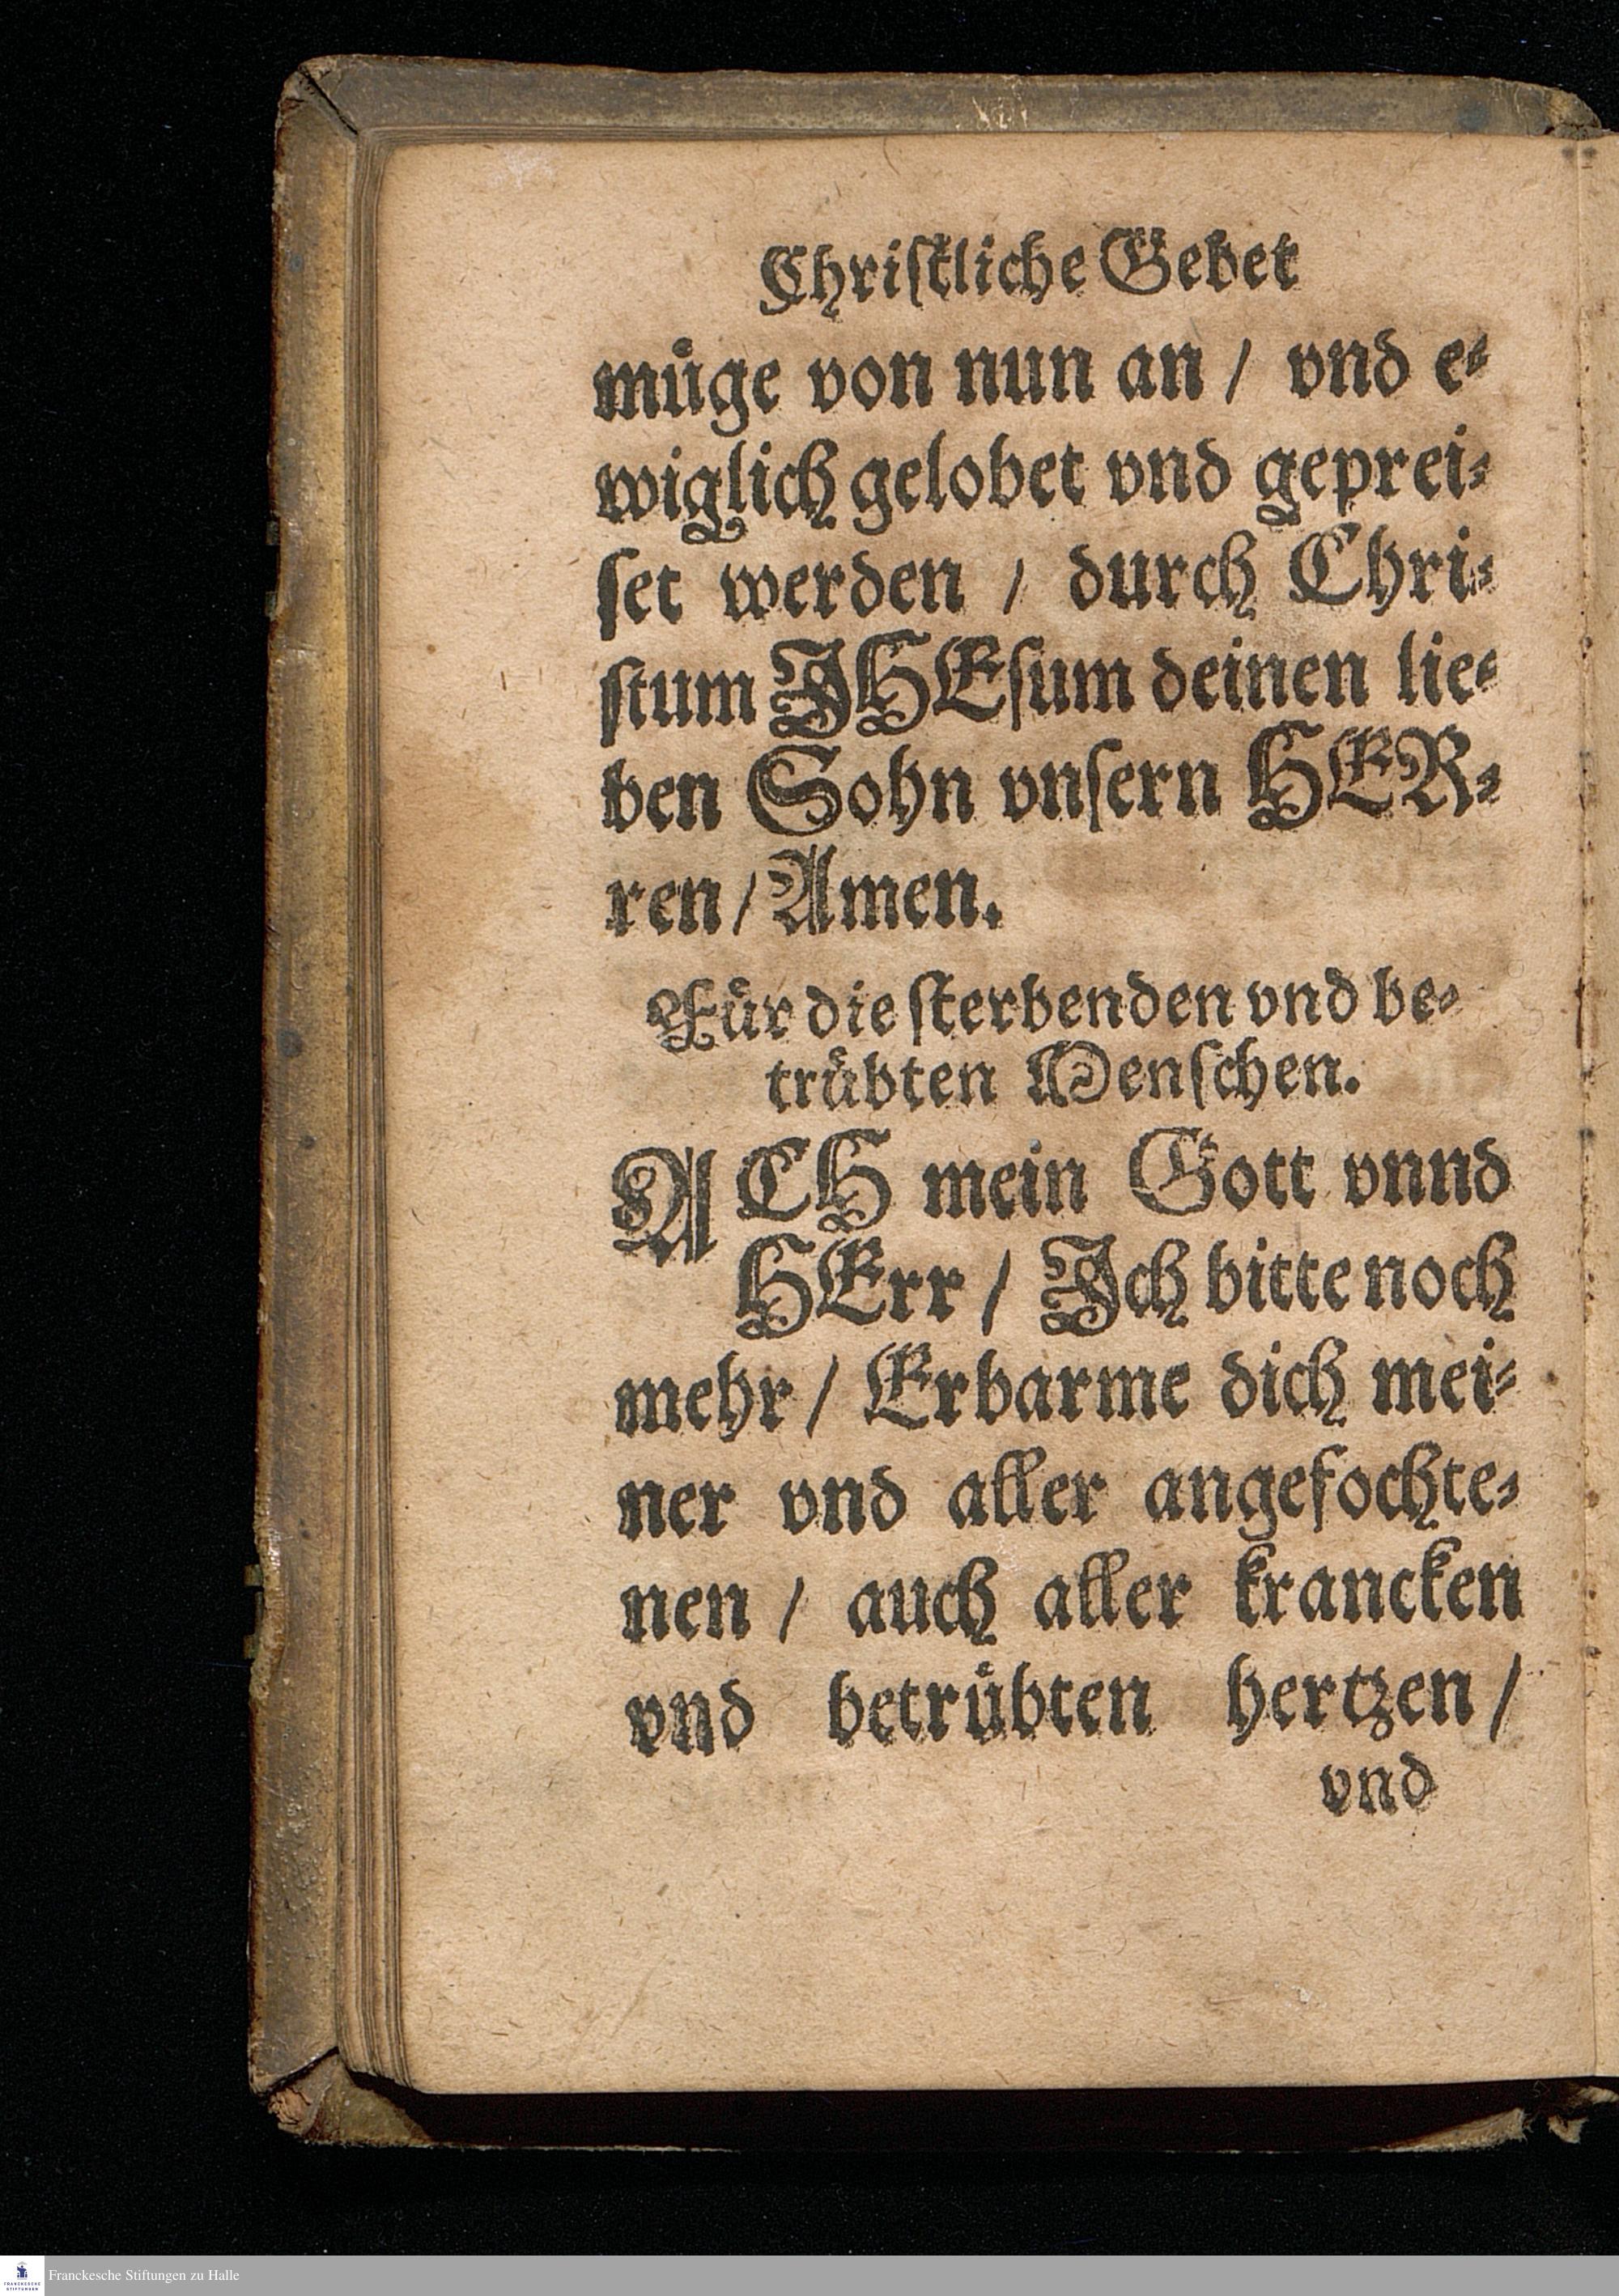 Chriſtliche Gebet
muͤge von nun an / vnd e⸗
wiglich gelobet vnd geprei⸗
ſet werden / durch Chri⸗
ſtum JHEſum deinen lie⸗
ben Sohn vnſern HER⸗
ren / Amen.
Fuͤr die ſterbenden vnd be⸗
truͤbten Menſchen.
ACH mein Gott vnnd
HErr / Jch bitte noch
mehr / Erbarme dich mei⸗
ner vnd aller angefochte⸗
nen / auch aller krancken
vnd betruͤbten hertzen /
vnd
FRANCKESCHE STIFTUNGEN
Franckesche Stiftungen zu Halle